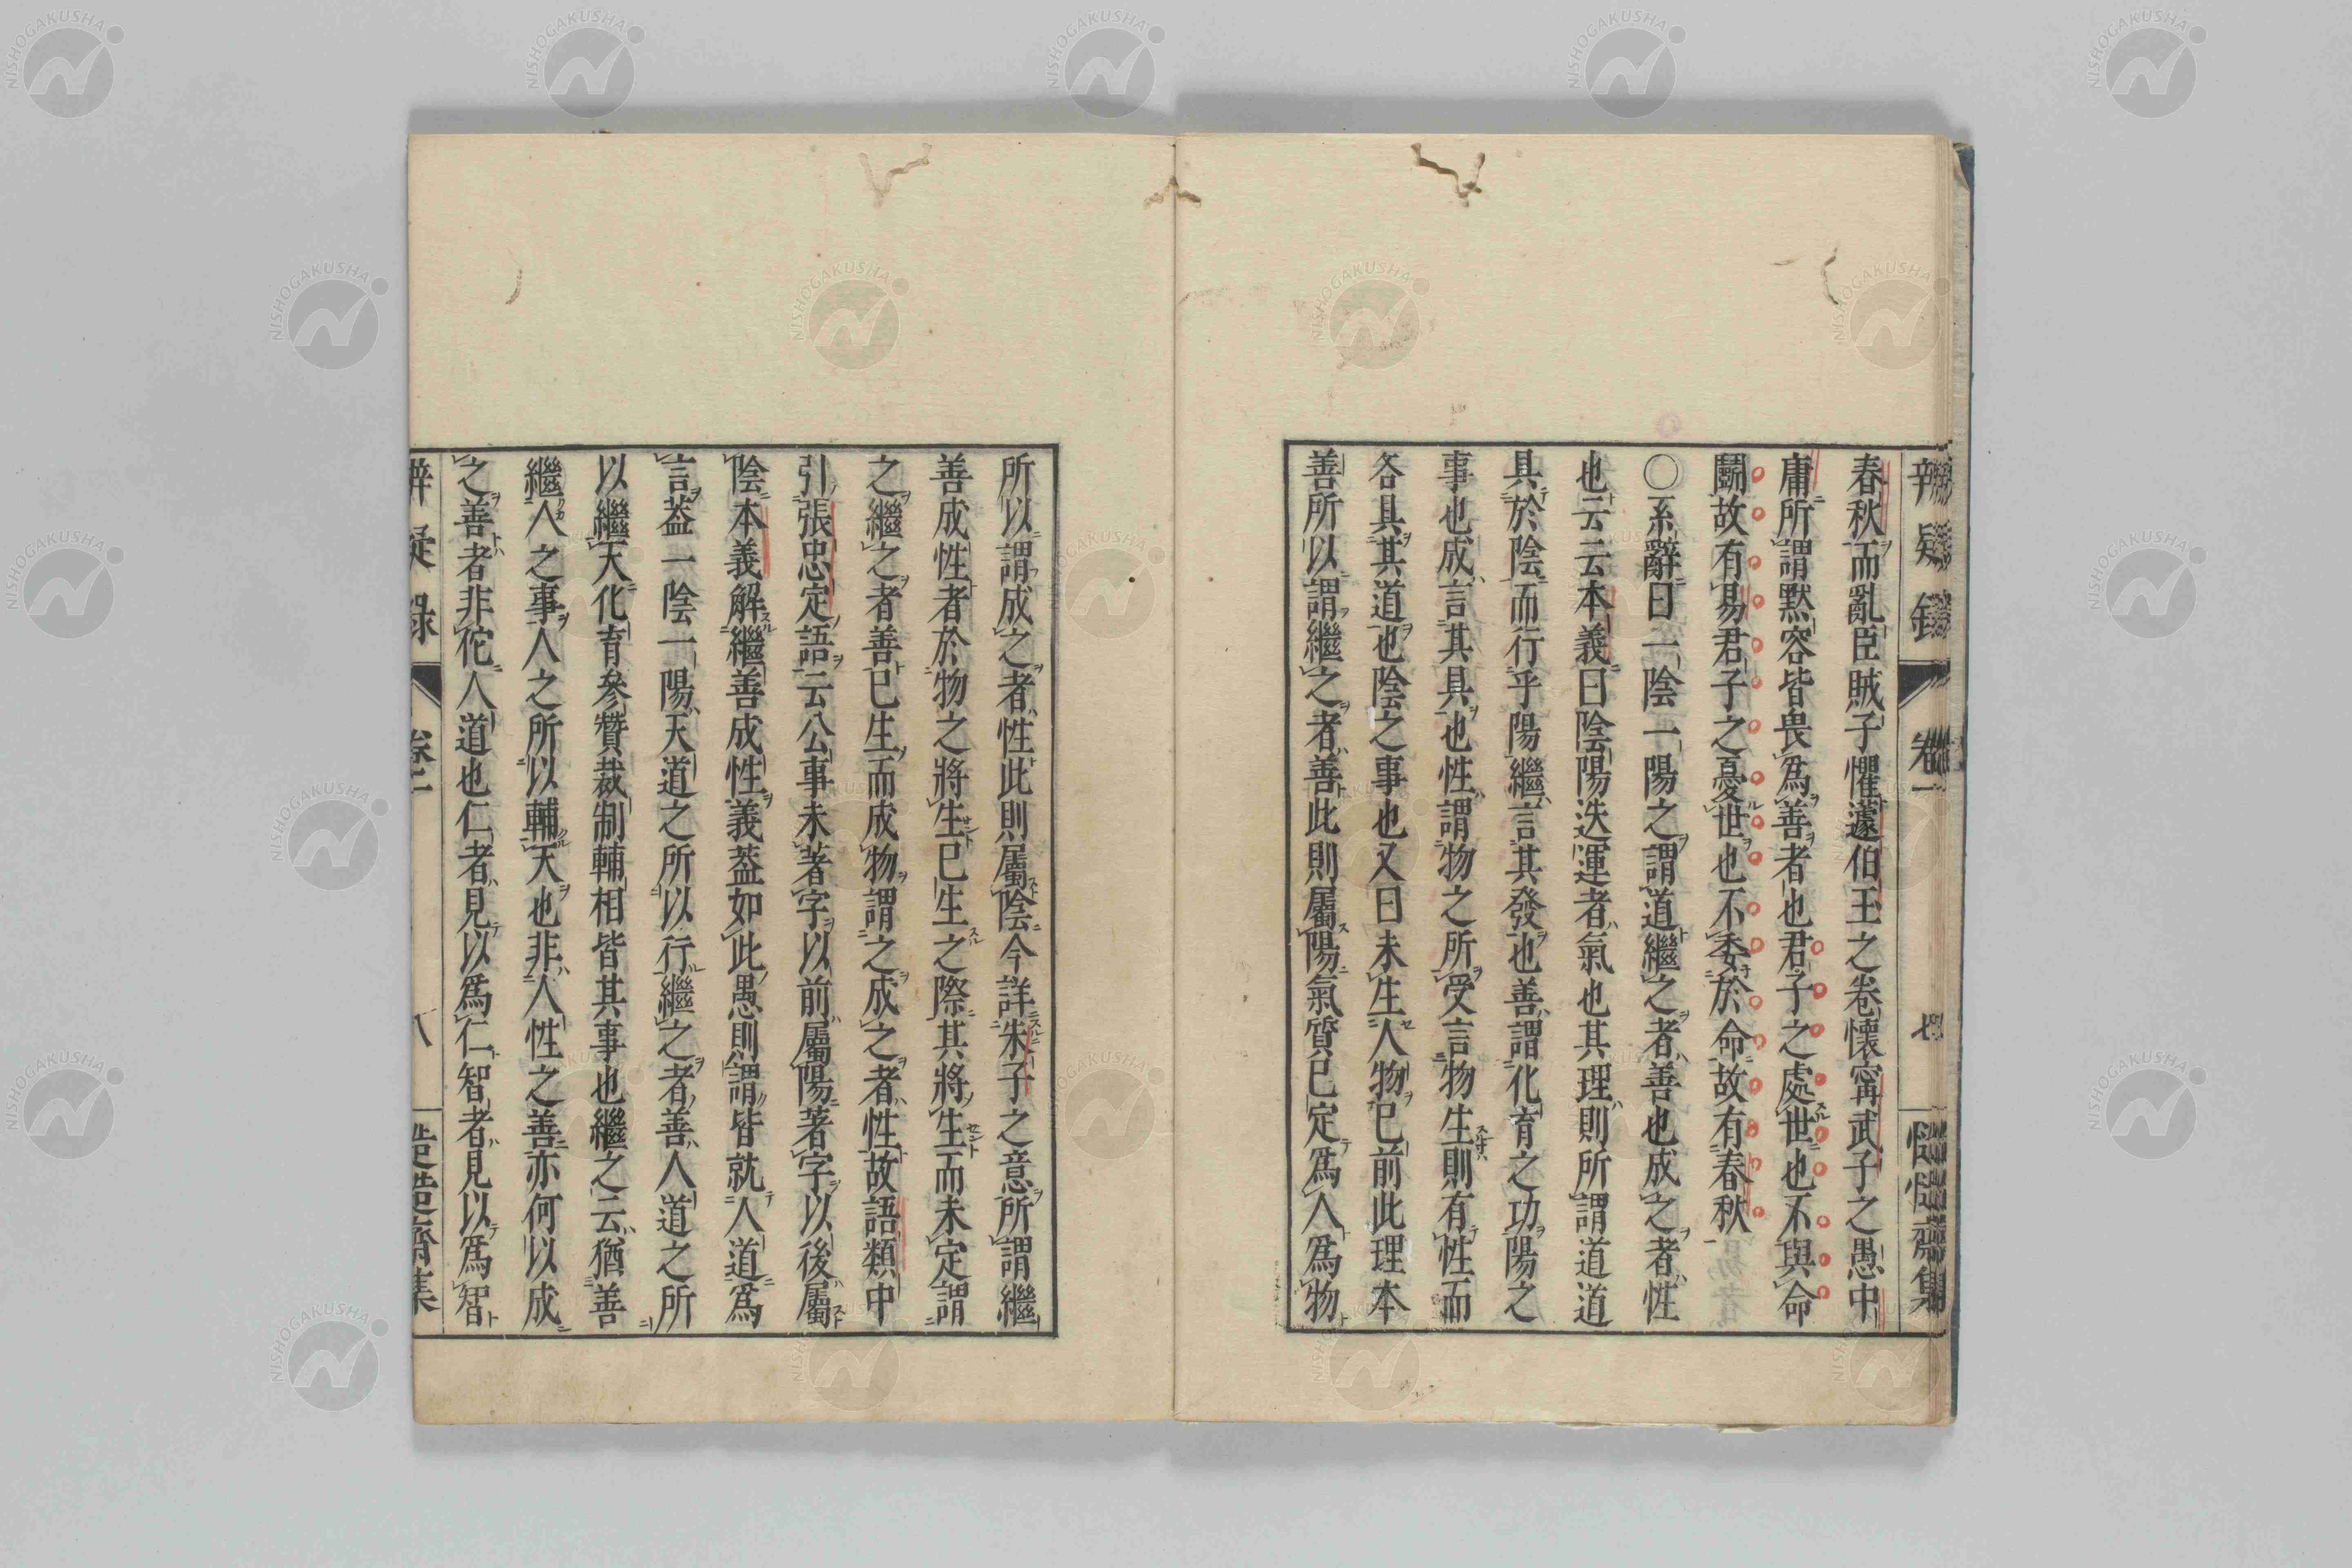 辨疑錄 卷一 七 慥慥齋集
春秋而亂臣賊子懼蘧伯玉之卷懷甯武子之愚中
庸所謂默容皆畏爲善者也君子之處世也不與命
鬭故有易君子之憂世也不委於命故有春秋
○系辭曰一陰一陽之謂道繼之者善也成之者性
也云云本義曰陰陽迭運者氣也其理則所謂道道
具於陰而行乎陽繼言其發也善謂化育之功陽之
事也成言其具也性謂物之所受言物生則有性而
各具其道也陰之事也又曰未生人物已前此理本
善所以謂繼之者善此則屬陽氣質已定爲人爲物
所以謂成之者性此則屬陰今詳朱子之意所謂繼
善成性者於物之將生已生之際其將生而未定謂
之繼之者善已生而成物謂之成之者性故語類中
引張忠定語云公事未著字以前屬陽著字以後屬
陰本義解繼善成性義葢如此愚則謂皆就人道爲
言葢一陰一陽天道之所以行繼之者善人道之所
以繼天化育參贊裁制輔相皆其事也繼之云猶善
繼人之事人之所以輔天也非人性之善亦何以成
之善者非佗人道也仁者見以爲仁智者見以爲智
辨疑錄 卷一 八 慥慥齋集
NISHOGAKUSHA